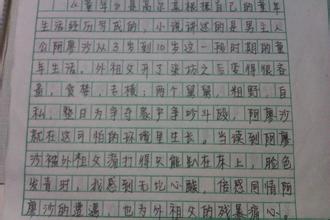 《童年》是高尔基根据自己的童年
生活经历写成的，小说讲述的是男主人
公阿廖沙从3岁到10岁这一时期的童
年生活。外祖父开了染坊之后变得很吝
啬，贪婪，专横；两个舅舅，粗野，自
私，整日为争夺家产争吵斗殴，阿廖沙
就在这可怕的环境里生长。当读到阿廖
沙被外祖父毒打得只能趴在床上，脸色
发青时，我感到无比心酸，倍感同情阿
廖沙的遭遇，也为外祖父的残暴痛心